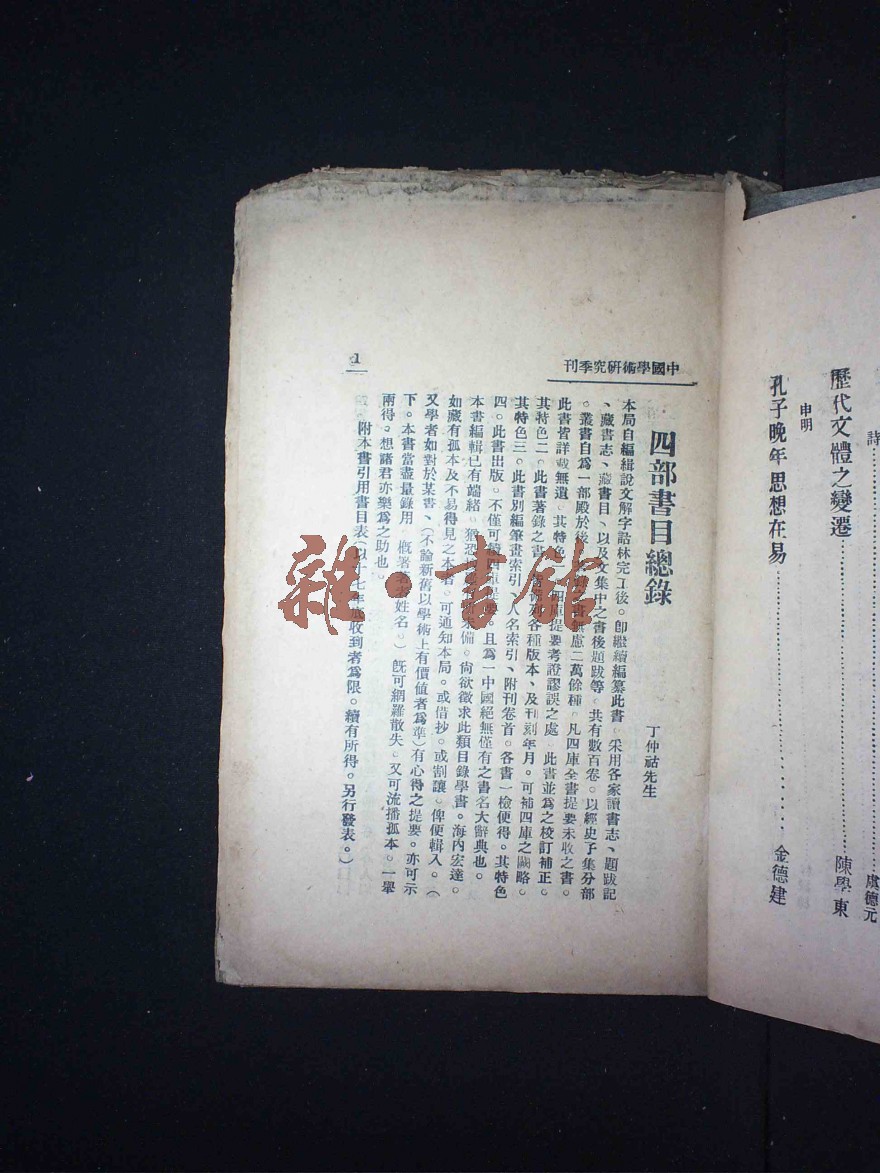 詩
虞德元
歷代文體之變遷
陳學東
申明
孔子晚年思想在易
金德建
中國學術研究季刊
四部書目總錄
丁仲祜先生
本局自編緝說文解字詁林完工後。卽繼續編纂此書。采用各家讀書志、題跋記
、藏書志、藏書目、以及文集中之書後題跋等。共有數百卷。以經史子集分部
。叢書自爲一部殿於後。書無慮二萬餘種。凡四庫全書提要未收之書。
此書皆詳載無遺。其特色一。四庫提要考證謬誤之處。此書並爲之校訂補正。
其特色二。此書著錄之書。各種版本、及刊刻年月。可補四庫之闕略。
其特色三。此書別編筆畫索引、人名索引、附刊卷首。各書一檢便得。其特色
四。此書出版。不僅可四庫提要。且爲一中國絕無僅有之書名大辭典也。
本書編輯已有端緒。猶恐未備。尙欲徵求此類目錄學書。海內宏達。
如藏有孤本及不易得見之本者。可通知本局。或借抄。或割讓。俾便輯入。（
又學者如對於某書、（不論新舊以學術上有價值者爲準）有心得之提要。亦可示
下。本書當盡量錄用。槪署姓名。）旣可網羅散失。又可流播孤本。一舉
兩得。想諸君亦樂爲之助也。
附本書引用書目表（以十七年底收到者爲限。續有所得。另行發表。）
1
雜·書館